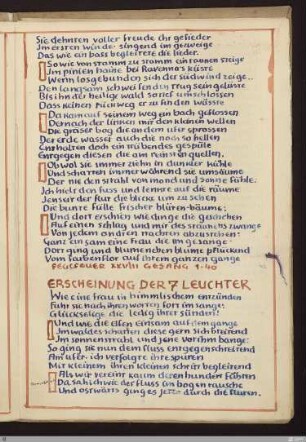 Sie dehnten voller freude ihr gefieder
Im ersten winde singend im gezweige
Das wie ein bass begleitete die lieder.
So wie von stamm zu stamm ein raunen steige
Im pinien haine bei Ravenna's küste
Wenn losgebunden sich der südwind zeige..
Den langsam schweifenden trug sein gelüste
Bis ihn der heilge wald so tief umschlossen
Dass keinen rückweg er zu finden wüsste
Da kam auf seinem weg ein bach geflossen
Der nach der linken mit den kleinen wellen
Die gräser bog die an dem ufer sprossen
Der erde wasser auch die noch so hellen
Enthalten doch ein trübendes gespüle
Entgegen diesen die am reinsten quellen.
Obwol sie immer ziehn in dunkler kühle
Und schatten immerwährend sie umsäume
Der nie den strahl von mond und sonne fühle.
Ich hielt den fuss und lenkte auf die räume
Jenseit der flut die blicke um zu sehen
Die bunte fülle frischer blüten-bäume:
Und dort erschien wie dinge die geschehen
Auf einen schlag und mit des staunens zwange
Von jedem andren nachten abzustehen:
Ganz einsam eine Frau die im gesange
Dort ging und blumen neben blume pflückend
Vom farbenflor auf ihrem ganzen gange
FEGEFEUER XXVIII GESANG 1-40
ERSCHEINUNG DER 7 LEUCHTER
Wie eine frau in himmlischem entzünden
Fuhr sie nach ihren worten fort im sange:
Glückselige die ledig ihrer sünden!
Und wie die elfen einsam auf dem gange
Im waldesschatten diese gern sich breitend
Im sonnenstrahl und jene vor ihm bange:
So ging sie nun dem fluss entgegenschreitend
Am ufer · ich verfolgte ihre spuren
Mit kleinem ihren kleinen schritt begleitend
Als wir vereint kaum deren hundert fuhren
Da sah ich wie der fluss im bogen rausche
Und ostwärts ging es jetzt durch die fluren.